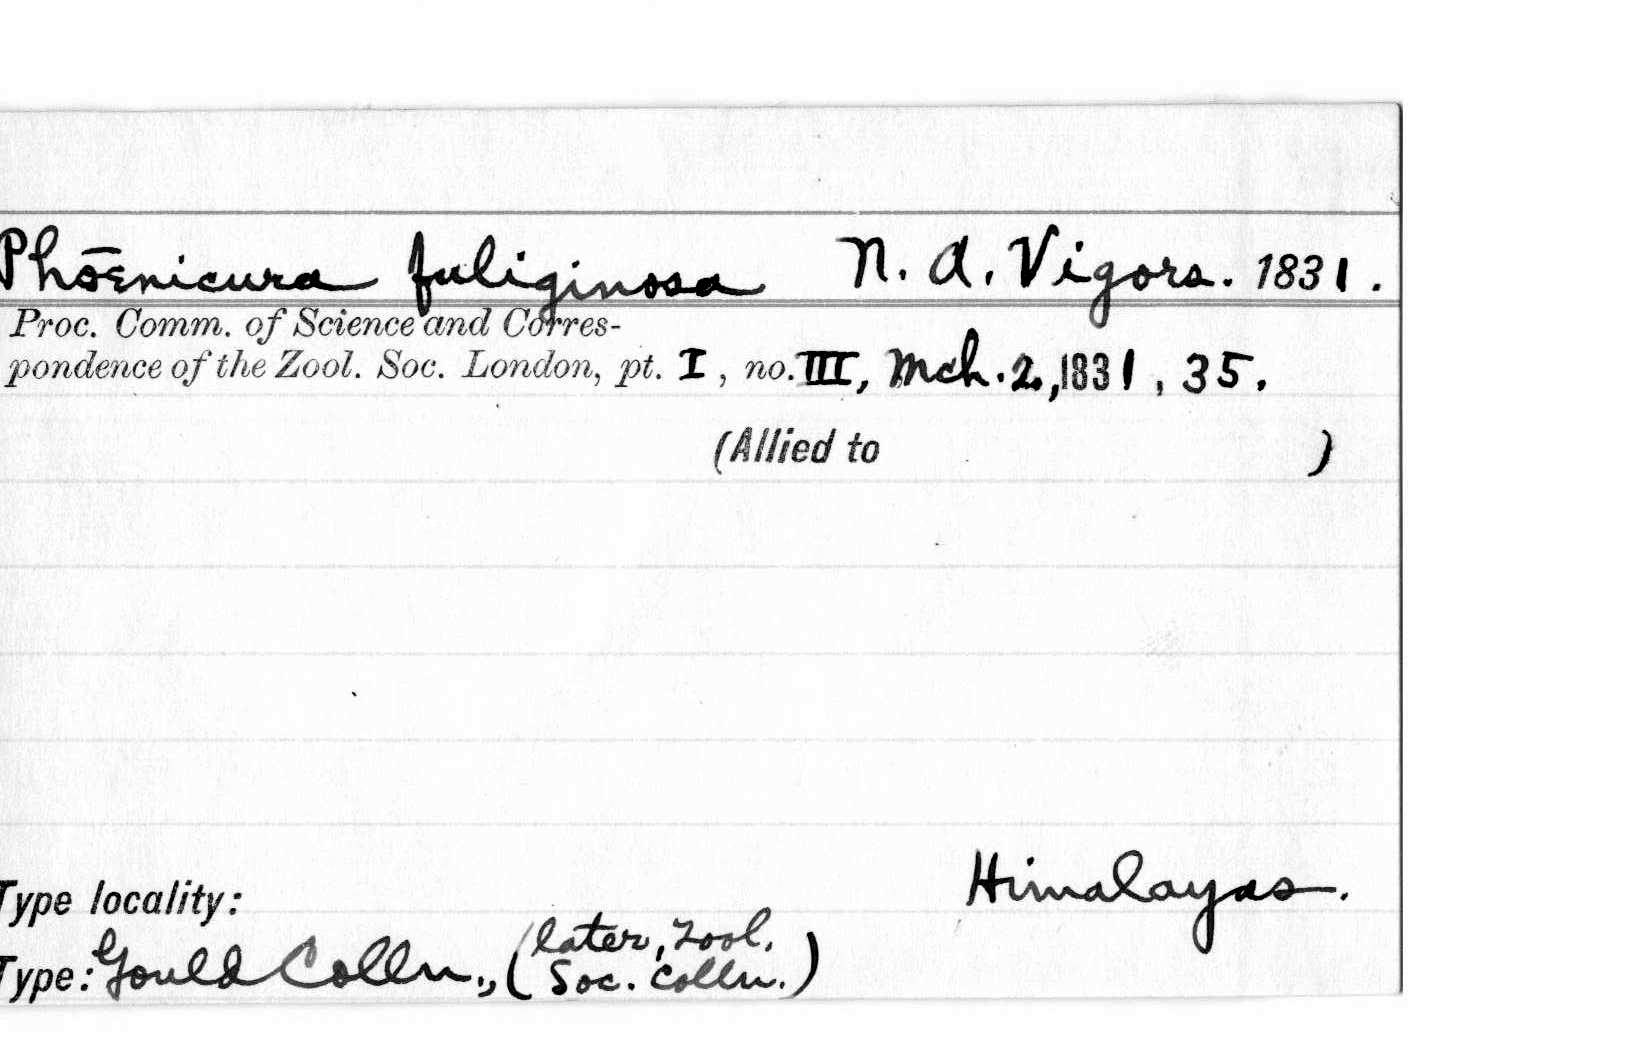 Phōenicura fuliginosa N. A. Vigors. 1831.
Proc. Comm. of Science and Corres-
pondence of the Zool. Soc. London, pt. I, no. III, Mch. 2, 1831, 35.
(Allied to )
Type locality: Himalayas.
Type: Gould Colln., (later, Zool.
Soc. Colln.)